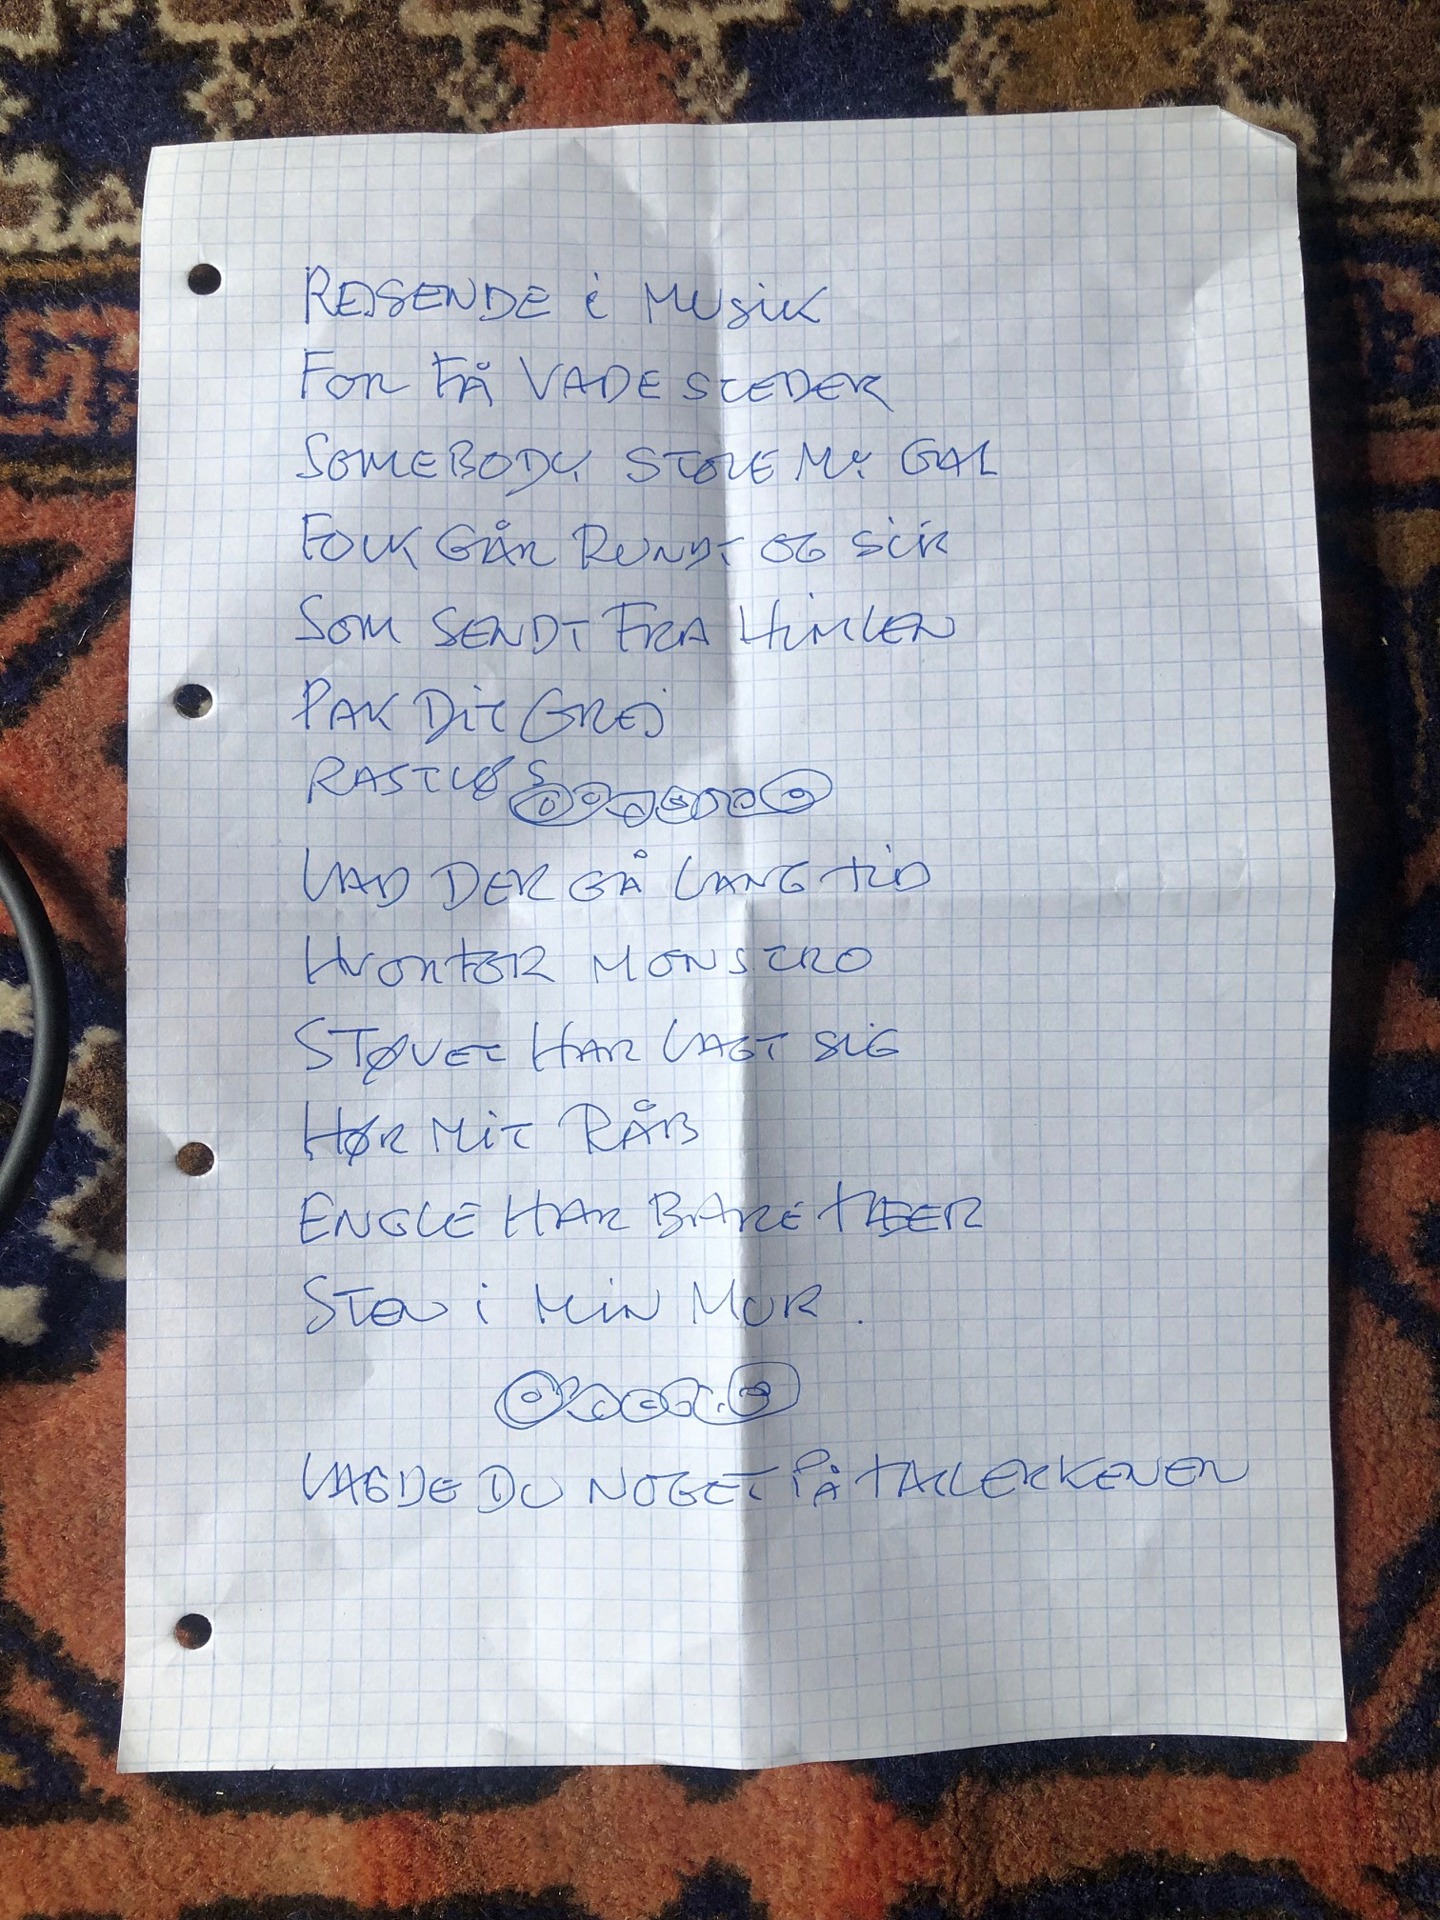 REJSENDE i MUSiK
FOR FÅ VADESTEDER
SOMEBODY STOLE MY GAL
FOLK GÅR RUNDT OG SiR
SOM SENDT FRA HiMLEN
PAK DiT GREJ
RASTLØS
LAD DER GÅ LANG TiD
HVORFOR MONSTRO
STØVET HAR LAGT SiG
HØR MiT RÅB
ENGLE HAR BARE TÆER
STEN i MiN MUR.
LAGDE DU NOGET PÅ TALLERKENEN